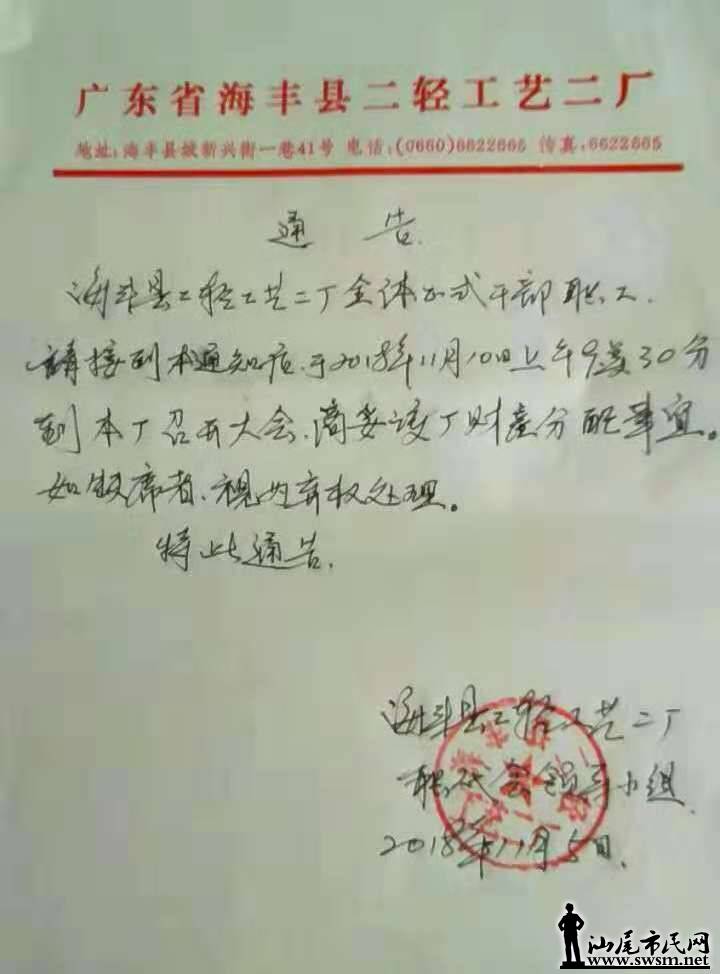 广东省海丰县二轻工艺二厂
地址:海丰县城新兴街一巷41号 电话:(0660)6622665 传真:6622665
通 告
海丰县二轻工艺二厂全体正式干部职工.
請接到本通知后.于2018年11月10日上午9点30分
到本厂召开大会.商妥该厂财产分配事宜。
如缺席者.视为弃权处理。
特此通告.
海丰县二轻工艺二厂
职代会领导小组
2018年11月5日.
汕尾市民网
www.swsm.net